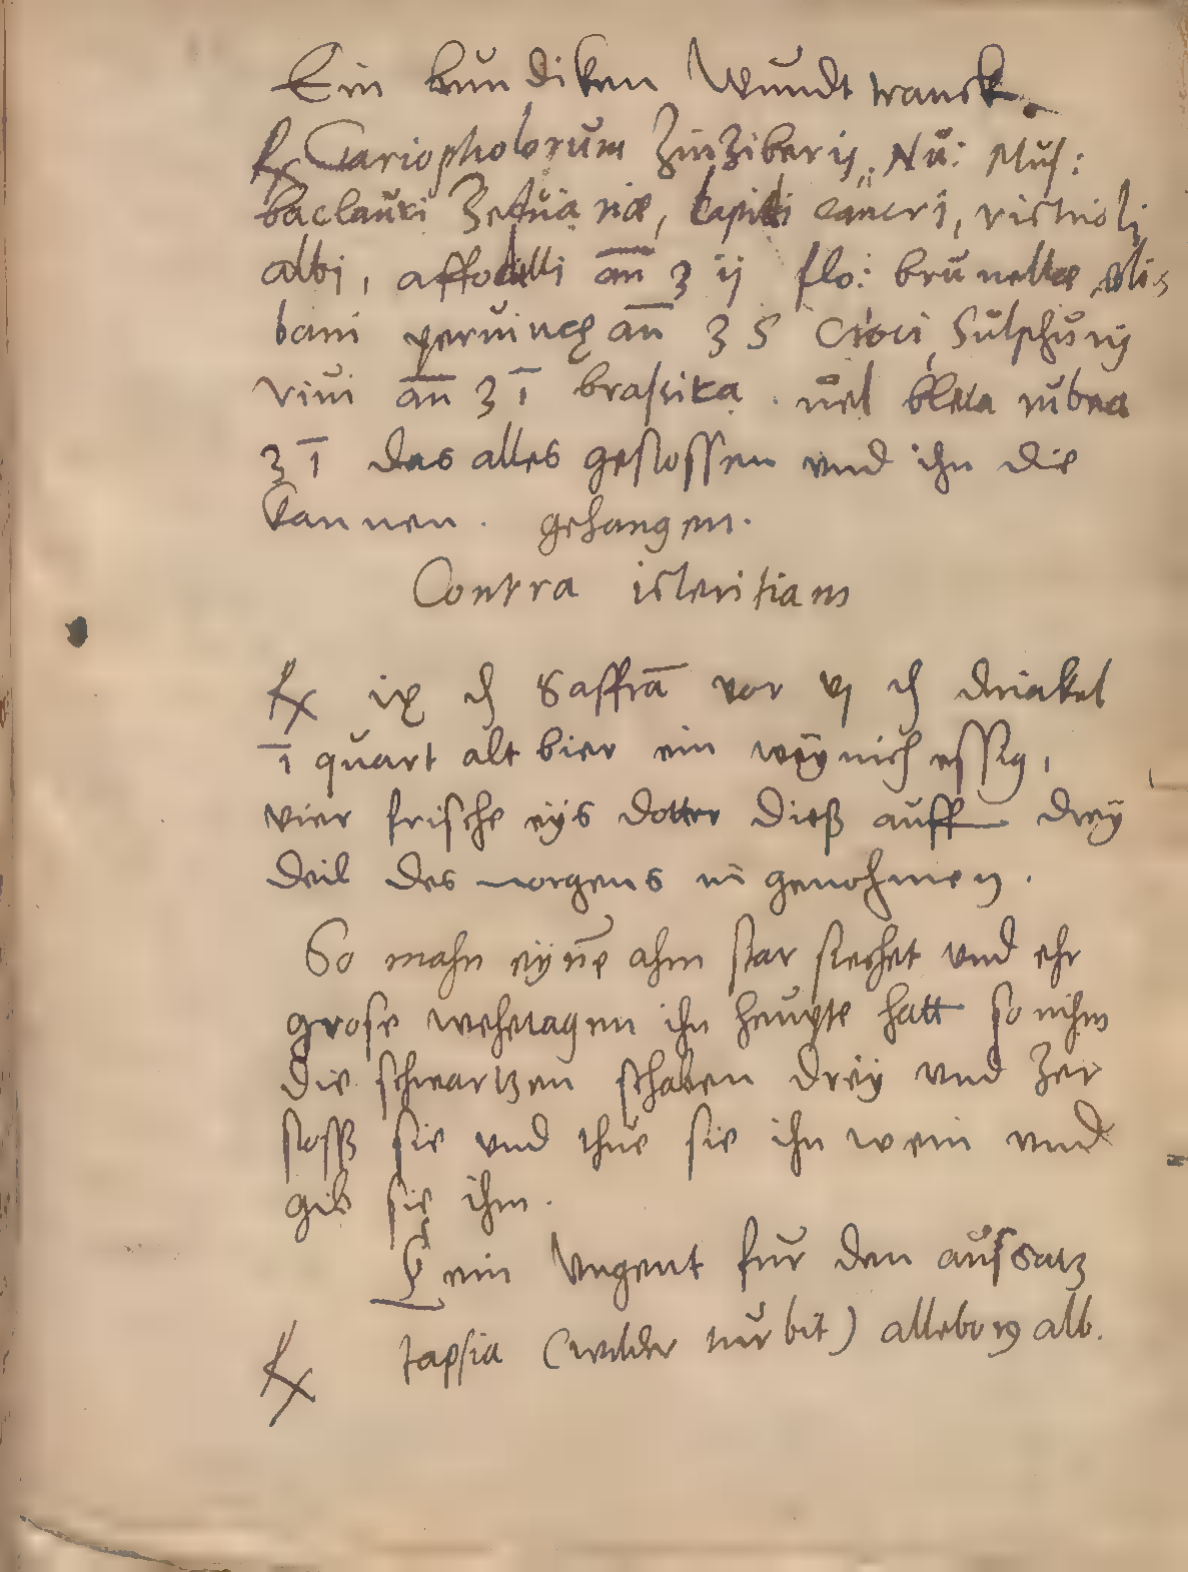 Ein bundiken Wundt tranck.
℞ Gariopholorum Zinziberis. Nu: Mus:
baclauri Zeduariæ, lapidi cancri, victrioli
albi, affodilli an̄ ʒ ij flo: brunellæ, oli-
bani peruincę an̄ ʒ S Croci, Sulphuris
viui an̄ ʒ ī brassica. uel bleta rubea
ʒ ī das alles gestossen vnd ihn die
kannen. gehangen.
Contra icteritiam
℞ ix ₰ Saffrā vor vj ₰ driakel
ī quart alt bier ein weynich essig,
vier frische eÿs dotter dieß auff dreÿ
deil des morgens in genohmen.
So mahn eÿnē ahm star stechet und ehr
grose wehetagen ihn heupte hatt so nihm
die schwartzen schaben dreÿ vnd Zer
stoss sie vnd thue sie ihn wein vnd
gib sie ihm.
ein Vngent fur den aussatz
℞ tapsia (wilder turbit) alleborus alb.